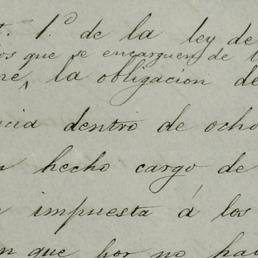 t. 1.º de la ley de
os que se encarguen de t
ne, la obligacion de
cia dentro de ocho
n hecho cargo de
impuesta á los
n que por no ha